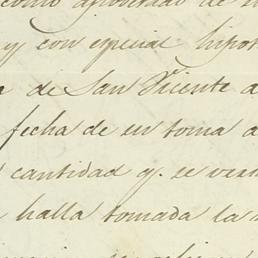 como apoderado de
y con especial hipot
de San Vicente a
fecha de su toma a
cantidad q. se ver
halla tomada la